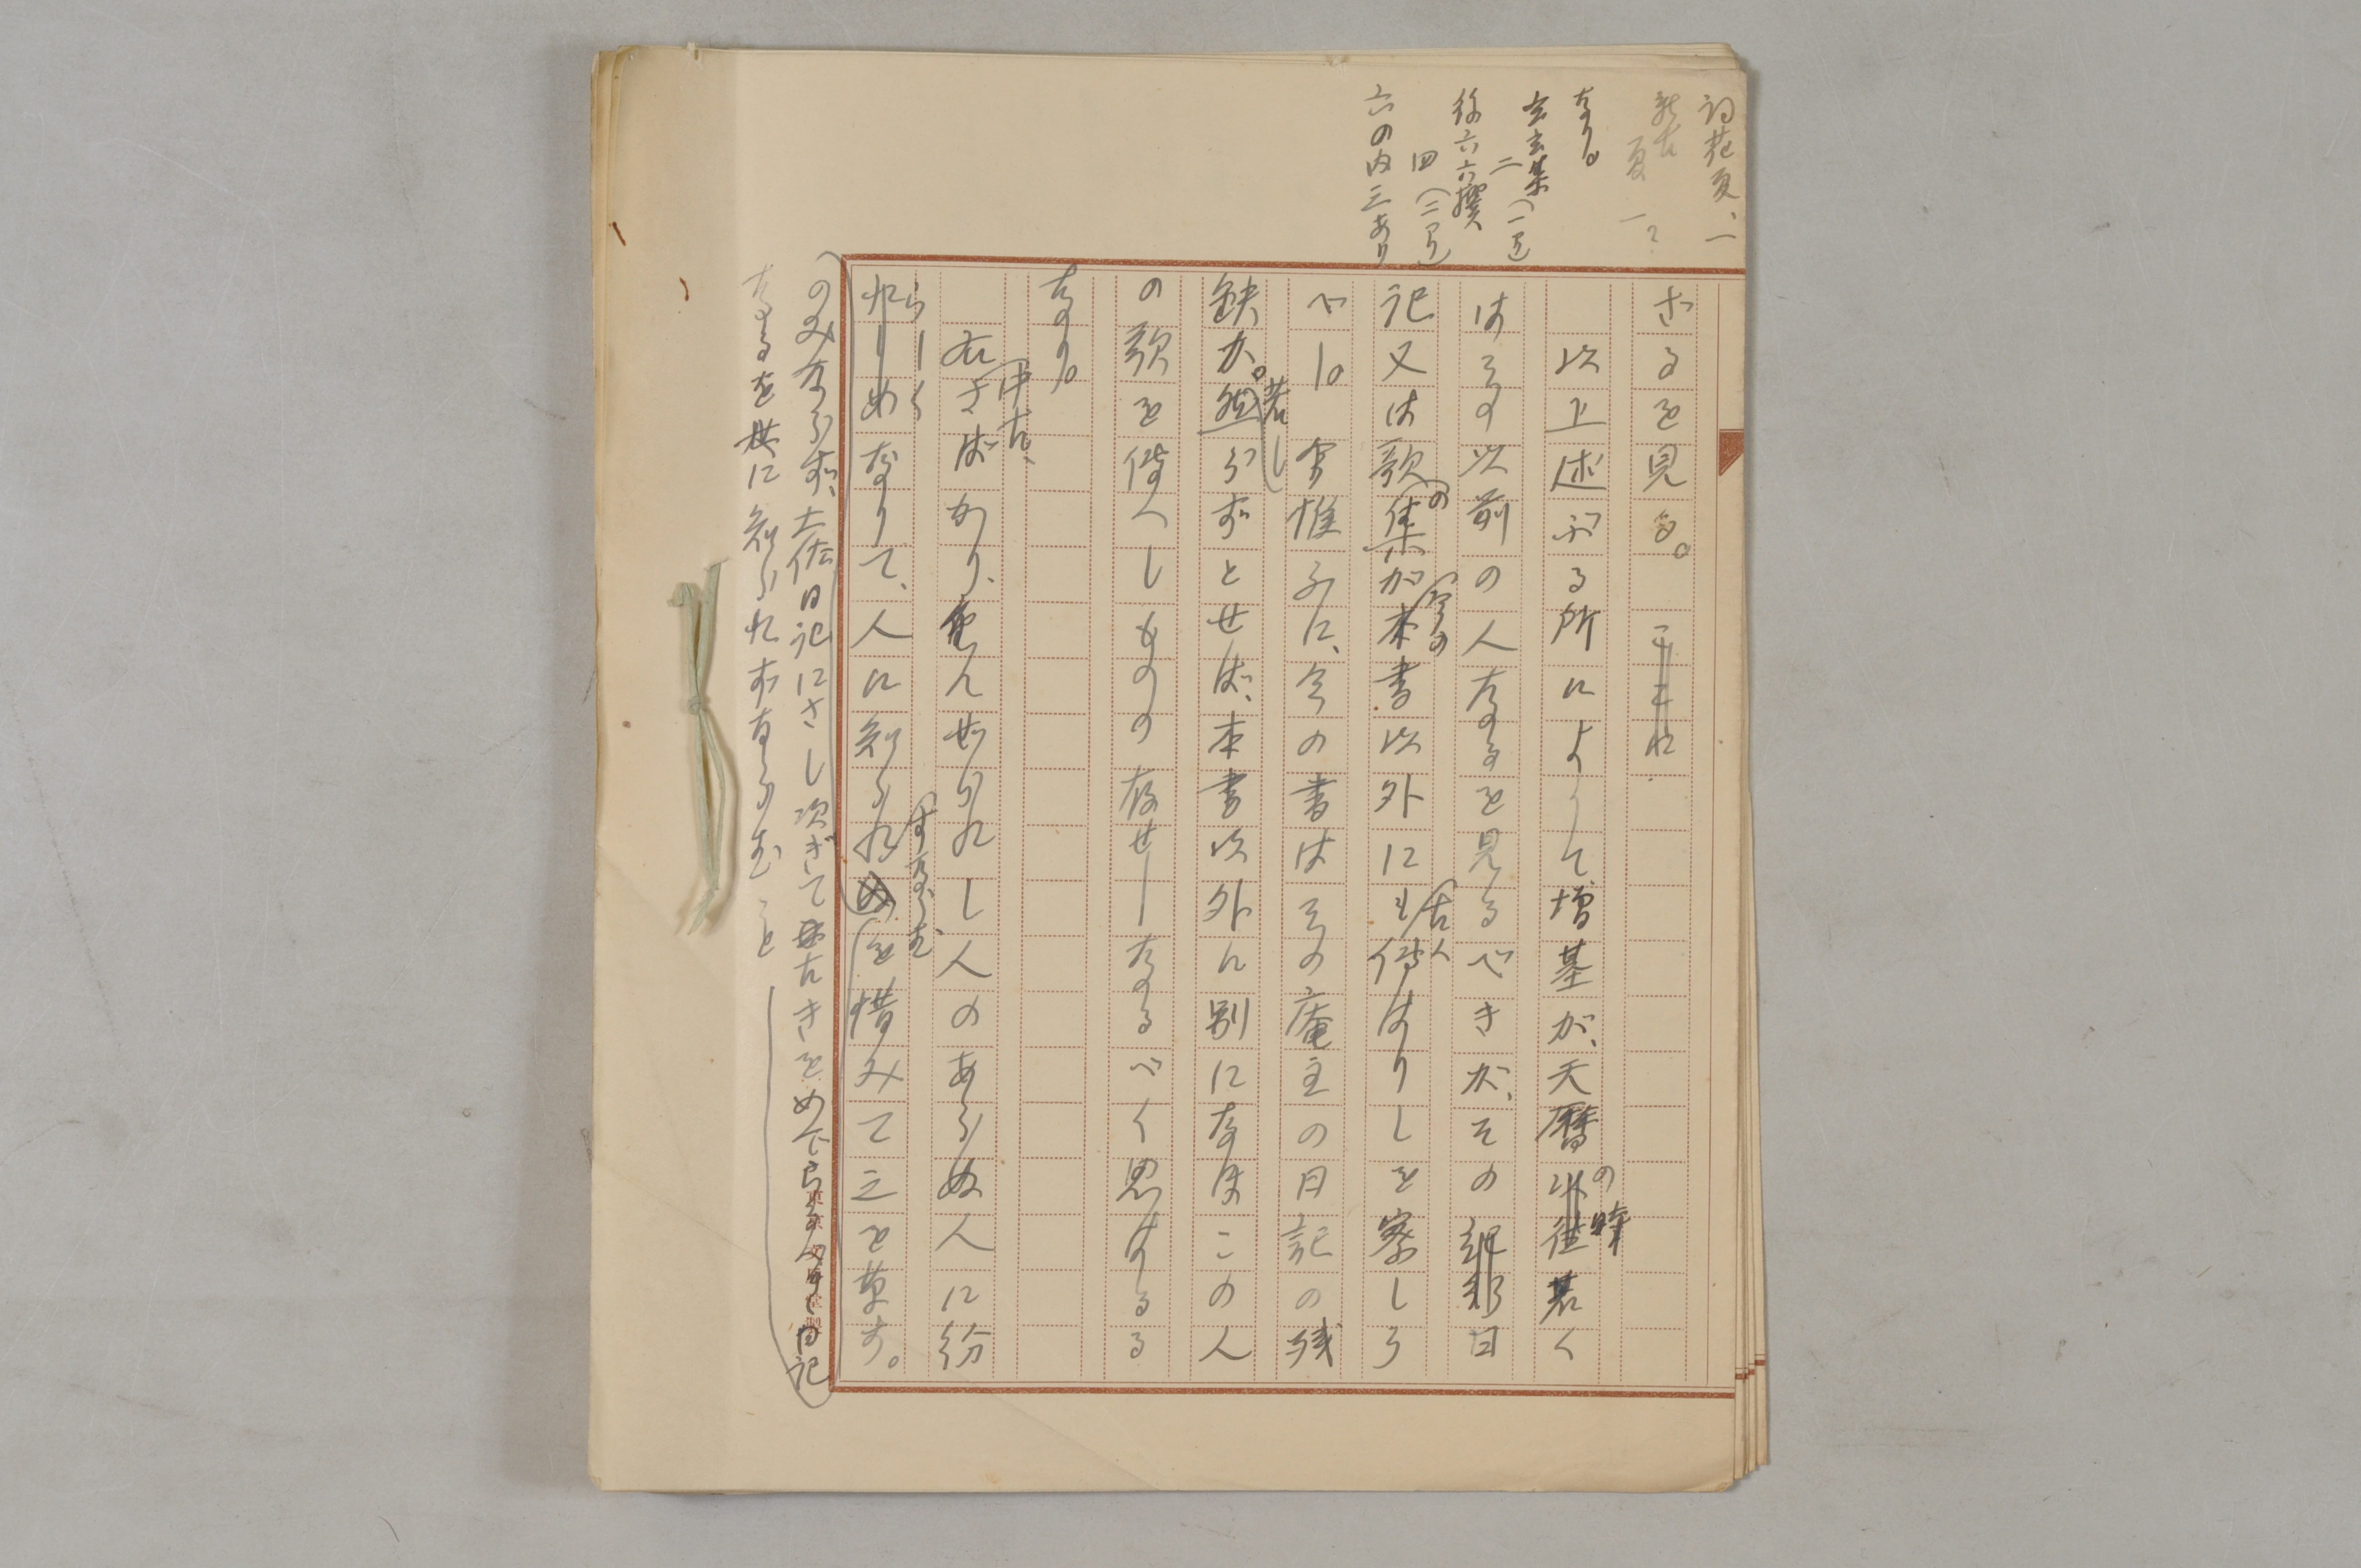 詞花夏、一
新古
夏 一?
なり。
玄玄集(一已
二
後六六撰
四(二已
六の内三あり
ざるを見る。
以上述ぶる所によりて、増基が、天暦の時若く
はその以前の人なるを見るべきが、その日
記又は歌集の が本書以外にも古人 伝はりしを察しう
べし。今惟ふに、今の書はその庵主の日記の残
缺か。若し 然らずとせば、本書以外に別になほこの人
の歌を伝へしものの存せしなるべく思はるる
なり。
右さばかり、中古、重んぜられし人のあらぬ人に紛
れしめらしく なりて、人に知られずなりを惜みて之を草す。
のみならず、土佐日記にさし次ぎて古き 日記
なるを世に知られずならむこと